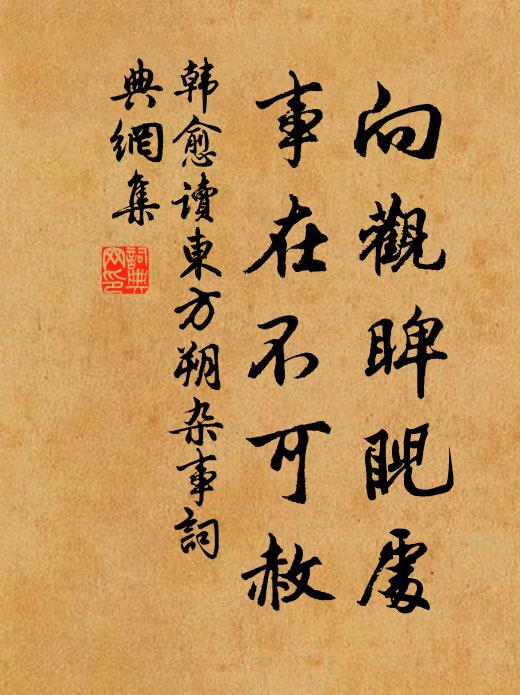 向觀睥睨處
事在不可赦
韩愈讀東方朔杂事詞
典網集
詞典
网印